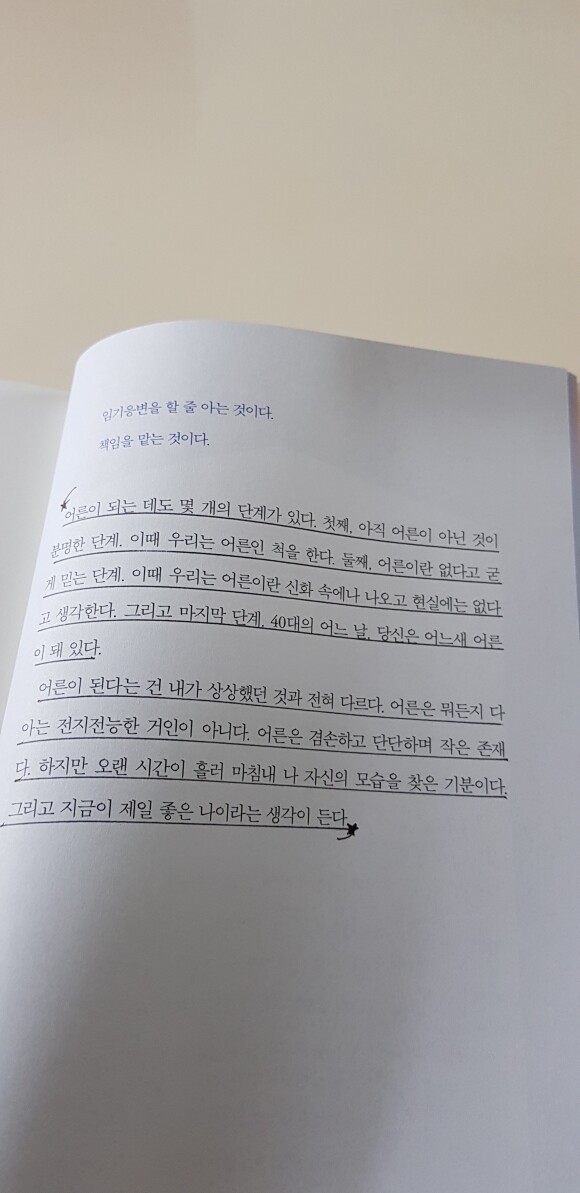 임기응변을 할 줄 아는 것이다.
책임을 맡는 것이다.
어른이 되는 데도 몇 개의 단계가 있다. 첫째, 아직 어른이 아닌 것이
분명한 단계. 이때 우리는 어른인 척을 한다. 둘째, 어른이란 없다고 굳
게 믿는 단계. 이때 우리는 어른이란 신화 속에나 나오고 현실에는 없다
고 생각한다. 그리고 마지막 단계, 40대의 어느 날, 당신은 어느새 어른
이 돼 있다.
어른이 된다는 건 내가 상상했던 것과 전혀 다르다. 어른은 뭐든지 다
아는 전지전능한 거인이 아니다. 어른은 겸손하고 단단하며 작은 존재
다. 하지만 오랜 시간이 흘러 마침내 나 자신의 모습을 찾은 기분이다.
그리고 지금이 제일 좋은 나이라는 생각이 든다.